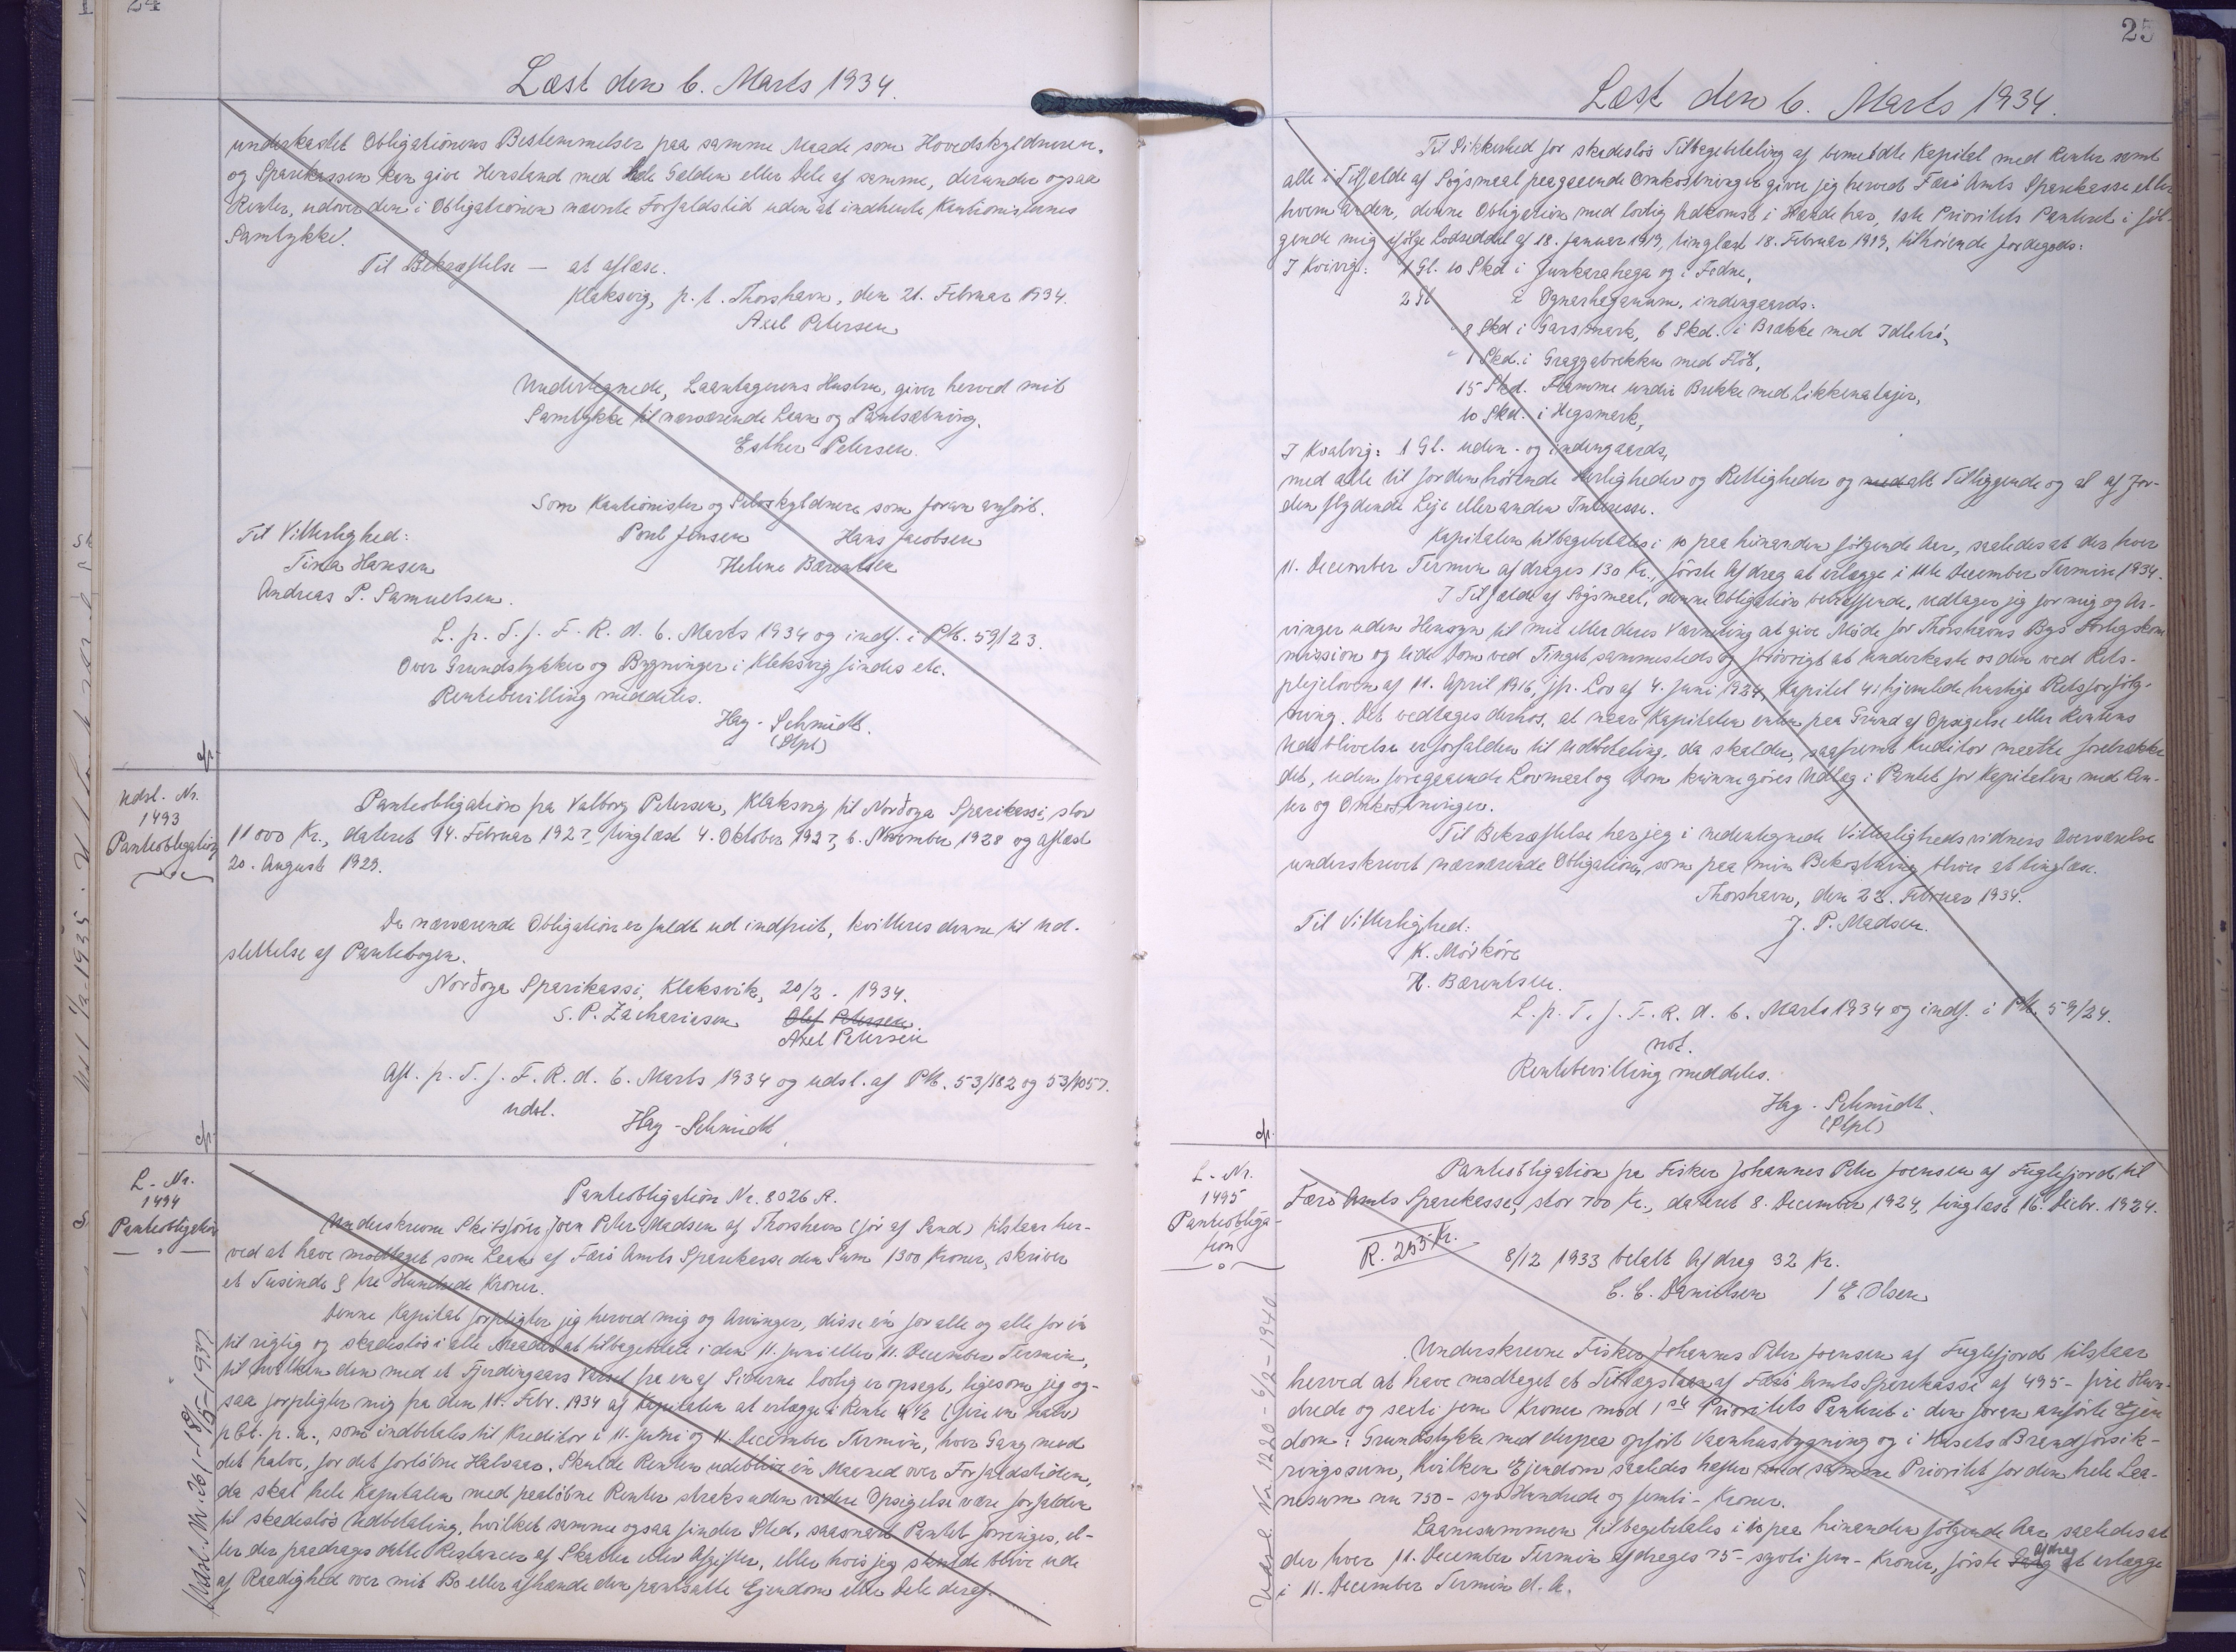 24
Læst den 6. Marts 1934.
underkastet Obligationens Bestemmelser paa samme Maade som Hovedskyldneren,
og Sparekassen kan give Henstand med hele Gælden eller Dele af samme, derunder ogsaa
Renter, udover den i Obligationen nævnte Forfaldstid uden at indhente Kautionisternes
Samtykke.
Til Bekræftelse — at aflæse.
Klaksvig, p. t. Thorshavn, den 21. Februar 1934.
Axel Petersen
Undertegnede, Laantagerens Hustru, giver herved mit
Samtykke til nærværende Laan og Pantsætning.
Esther Petersen.
Som Kautionister og Selvskyldnere som foran anført.
Til Vitterlighed:
Poul Jensen Hans Jacobsen
Tina Hansen
Helene Bærentsen
Andreas P. Samuelsen.
L. p. T. f. F. R. d. 6. Marts 1934 og indf. i PB. 59/23.
Over Grundstykker og Bygninger i Klaksvig findes etc.
Rentebevilling meddeles.
Hag-Schmidt.
(Stpl)
Udsl. Nr.
1493
Panteobligation
Panteobligation fra Valborg Petersen, Klaksvig til Norðoya Sparikassi, stor
11000 Kr., dateret 14. Februar 1927 tinglæst 4. Oktober 1927, 6. November 1928 og aflæst
20. August 1929.
Da nærværende Obligation er fuldt ud indfriet, kvitteres denne til Ud-
slettelse af Pantebogen.
Norðoya Sparikassi, Klaksvik, 20/2 - 1934.
S. P. Zachariasen Olef Petersen
Axel Petersen
Afl. p. T. f. F. R. d. 6. Marts 1934 og udsl. af PB. 53/182 og 53/1057.
Udsl.
Hag-Schmidt
L. Nr.
1494
Panteobligation
Panteobligation Nr. 8026 R.
Underskrevne Skibsfører Joen Peter Madsen af Thorshavn (før af Sand) tilstaar her-
ved at have modtaget som Laan af Færø Amts Sparekasse den Sum 1300 Kroner, skriver
et Tusinde & tre Hundrede Kroner.
Denne Kapital forpligter jeg herved mig og Arvinger, disse én for alle og alle for én
til rigtig og skadesløs i alle Maader at tilbagebetale i den 11. Juni eller 11. December Termin,
til hvilken den med et Fjerdingaars Varsel fra en af Siderne lovlig er opsagt, ligesom jeg og-
saa forpligter mig fra den 11. Febr. 1934 af Kapitalen at erlægge i Rente 4 1/2 (fire en halv)
pCt. p. a., som indbetales til Kreditor i 11. Juni og 11. December Termin, hver Gang med
det halve, for det forløbne Halvaar. Skulde Renten udeblive én Maaned over Forfaldstiden,
da skal hele Kapitalen med paaløbne Renter straks uden videre Opsigelse være forfalden
til skadesløs Udbetaling, hvilket samme ogsaa finder Sted, saasnart Pantet forringes, el-
ler der paadrages dette Restancer af Skatter eller Afgifter, eller hvis jeg skulde blive ude
af Raadighed over mit Bo eller afhænde den pantsatte Ejendom eller Dele deraf.
Udsl. Nr. 261 - 18/5 - 1937
25
Læst den 6. Marts 1934.
Til Sikkerhed for skadesløs Tilbagebetaling af bemeldte Kapital med Renter samt
alle i Tilfælde af Søgsmaal paagaaende Omkostninger giver jeg herved Færø Amts Sparekasse eller
hvem anden, denne Obligation med lovlig Adkomst i Hænde har, 1ste Prioritets Panteret i føl-
gende mig ifølge Lodseddel af 18. Januar 1919, tinglæst 18. Februar 1919, tilhørende Jordegods:
I Kvivig: 1 Gl. 10 Skd i Junkarahaga og i Fedne,
2 Gl i Ognarhaganum, indengaards:
8 Skd i Garsmark, 6 Skd. i Brække med Idletrø,
1 Skd. i Graggabrekku med Fløt,
15 Skd. Framme under Brekke med Likkenalajir,
10 Skd. i Hegsmerk,
I Kvalvig: 1 Gl. uden- og indengaards,
med alle til Jorden hørende Herligheder og Rettigheder og med alt Tilliggende og al af Jor-
den flydende Leje eller anden Interesse.
Kapitalen tilbagebetales i 10 paa hinanden følgende Aar, saaledes at der hver
11. December Termin afdrages 130 Kr., første Afdrag at erlægge i 11te December Termin 1934.
I Tilfælde af Søgsmaal, denne Obligation betræffende, vedtager jeg for mig og Ar-
vinger uden Hensyn til mit eller deres Værneting at give Møde for Thorshavns Bys Forligskom
mission og lide Dom ved Tinget sammesteds og forøvrigt at underkaste os den ved Rets-
plejeloven af 11. April 1916, jfr. Lov af 4. Juni 1924, Kapitel 41 hjemlede hurtige Retsforfølg-
ning. Det vedtages derhos, at naar Kapitalen enten paa Grund af Opsigelse eller Rentens
Udeblivelse er forfalden til Udbetaling, da skal der, saafremt Kreditor maatte foretrække
det, uden foregaaende Lovmaal og Dom kunne gøres Udlæg i Pantet for Kapitalen med Ren-
ter og Omkostninger.
Til Bekræftelse har jeg i nedentegnede Vitterlighedsvidners Overværelse
underskrevet nærværende Obligation, som paa min Bekostning bliver at tinglæse.
Thorshavn, den 28. Februar 1934.
Til Vitterlighed:
J. P. Madsen.
K. Mørkøre
H. Bærentsen.
L. p. T. f. F. R. d. 6. Marts 1934 og indf. i PB. 59/24.
not.
Rentebevilling meddeles.
Hag-Schmidt.
(Stpl)
L. Nr.
1495
Panteobliga-
tion
Panteobligation fra Fisker Johannes Peter Joensen af Fuglefjord til
Færø Amts Sparekasse, stor 700 Kr., dateret 8. December 1924, tinglæst 16. Decbr. 1924.
R. 255 Kr.
8/12 1933 betalt Afdrag 32 Kr.
C. C. Danielsen / E Olsen
Underskrevne Fisker Johannes Peter Joensen af Fuglefjord tilstaar
herved at have modtaget et Tillægslaan af Færø Amts Sparekasse af 495- fire Hun-
drede og seksti fem Kroner mod 1ste Prioritets Panteret i den foran anførte Ejen
dom: Grundstykke med derpaa opført Vaanhusbygning og i Husets Brandforsik-
ringssum, hvilken Ejendom saaledes hæfter med samme Prioritet for den hele Laa-
nesum nu 750- syv Hundrede og femti- Kroner.
Laanesummen tilbagebetales i 10 paa hinanden følgende Aar saaledes at
der hver 11. December Termin afdrages 75- syvti fem- Kroner, første Gang Afdrag at erlægge
i 11. December Termin d. A.
Udsl. Nr. 1220 - 6/2 - 1940